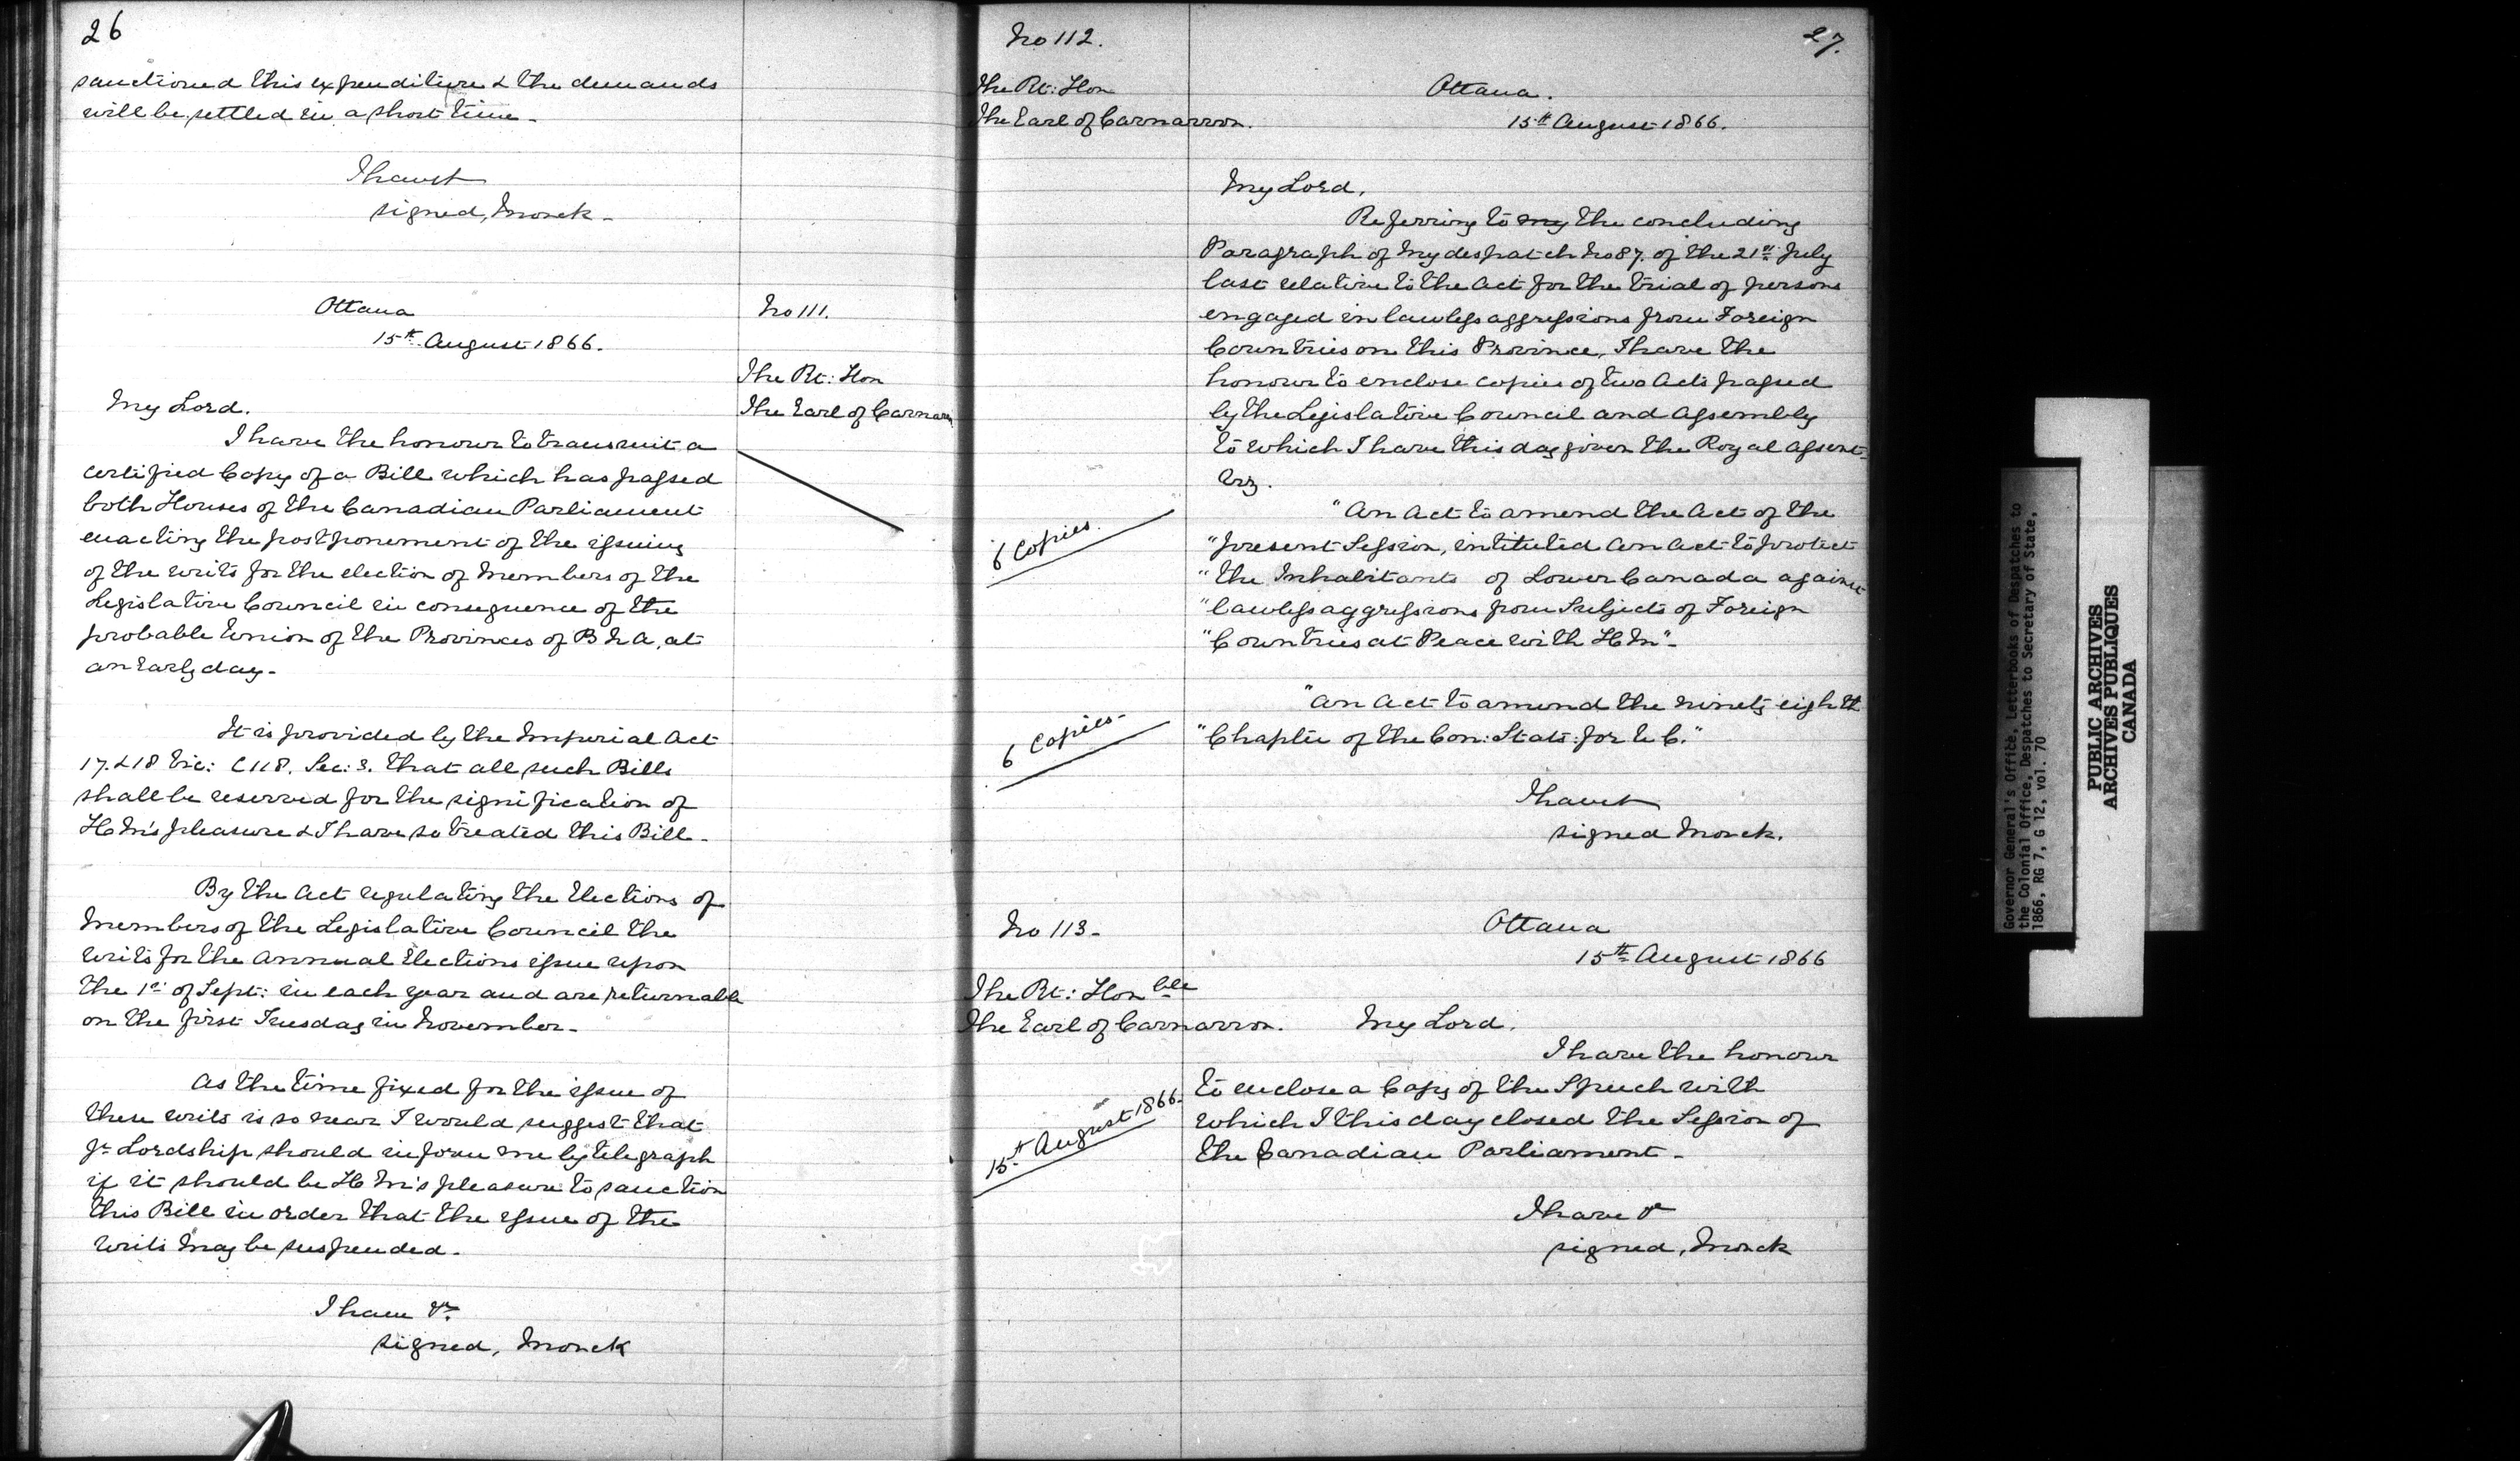 26
sanctioned this expenditure & the demands
will be settled in a short time -
I have &
signed, Monck -
Ottawa
15th August 1866.
No 111.
The Rt: Hon
The Earl of Carnarv
My Lord.
I have the honour to transmit a
certified Copy of a Bill which has passed
both Houses of the Canadian Parliament
enacting the postponement of the issuing
of the writs for the election of Members of the
Legislative Council in consequence of the
probable Union of the Provinces of B N A, at
an Early day -
It is provided by the Imperial Act
17. & 18 Vic: C 118. Sec: 3. that all such Bills
shall be reserved for the signification of
H M's pleasure & I have so treated this Bill -
By the Act regulating the Elections of
Members of the Legislative Council the
writs for the Annual Elections issue upon
the 1st of Sept: in each year and are returnable
on the first Tuesday in November -
As the time fixed for the issue of
these writs is so near I would suggest that
yr Lordship should inform me by telegraph
if it should be H M's pleasure to sanction
this Bill in order that the issue of the
writs may be suspended -
I have &c
signed, Monck
No 112.
27.
The Rt: Hon
The Earl of Carnarvon.
Ottawa.
15th August 1866.
My Lord,
Referring to my the concluding
Paragraph of my despatch No 87. of the 21st July
last relative to the Act for the trial of persons
engaged in lawless aggressions from Foreign
Countries on this Province, I have the
honour to enclose copies of two Acts passed
by the Legislative Council and Assembly
to which I have this day given the Royal Assent -
viz.
6 Copies.
"An Act to amend the Act of the
"present Session, intituled An Act to protect
"the Inhabitants of Lower Canada against
"lawless aggressions from Subjects of Foreign
"Countries at Peace with H M" -
6 Copies -
"An Act to amend the ninety eighth
"Chapter of the Con: Stats: for U C."
I have &
signed Monck.
No 113 -
Ottawa
15th August 1866
The Rt: Honble
The Earl of Carnarvon.
My Lord.
I have the honour
to enclose a Copy of the Speech with
which I this day closed the Session of
the Canadian Parliament -
15th August 1866 -
I have &c
signed, Monck
Governor General's Office, Letterbooks of Despatches to
the Colonial Office, Despatches to Secretary of State,
1866, RG 7, G 12, vol. 70
PUBLIC ARCHIVES
ARCHIVES PUBLIQUES
CANADA